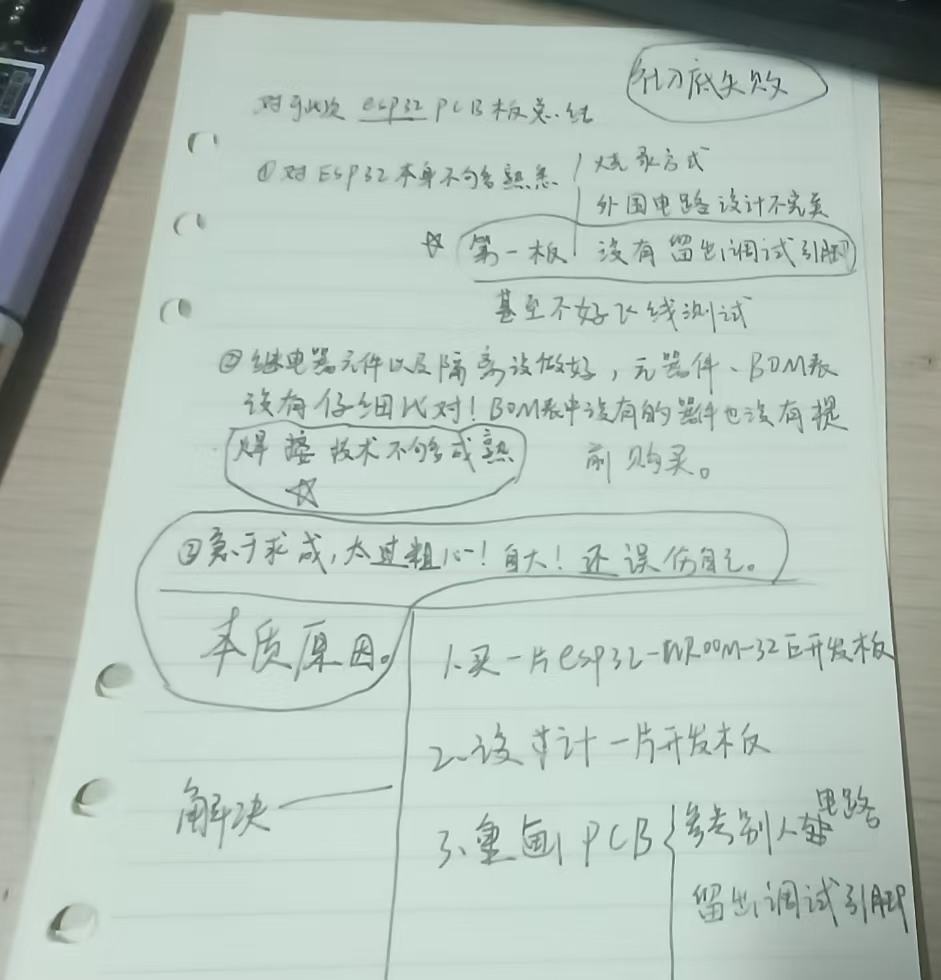 彻底失败
对于此次 esp32 PCB板总结
①对ESP32本身不够熟悉
烧录方式
外围电路设计不完美
☆ 第一板 没有留出调试引脚
甚至不好飞线测试
②继电器元件以及隔离没做好，元器件、BOM表
没有仔细比对！BOM表中没有的器件也没有提
前购买。
焊接技术不够成熟
☆
③急于求成，太过粗心！自大！还误伤自己。
本质原因。
解决
1.买一片esp32-WROOM-32E开发板
2.设计一片开发板
3.重画PCB
参考别人电路
留出调试引脚